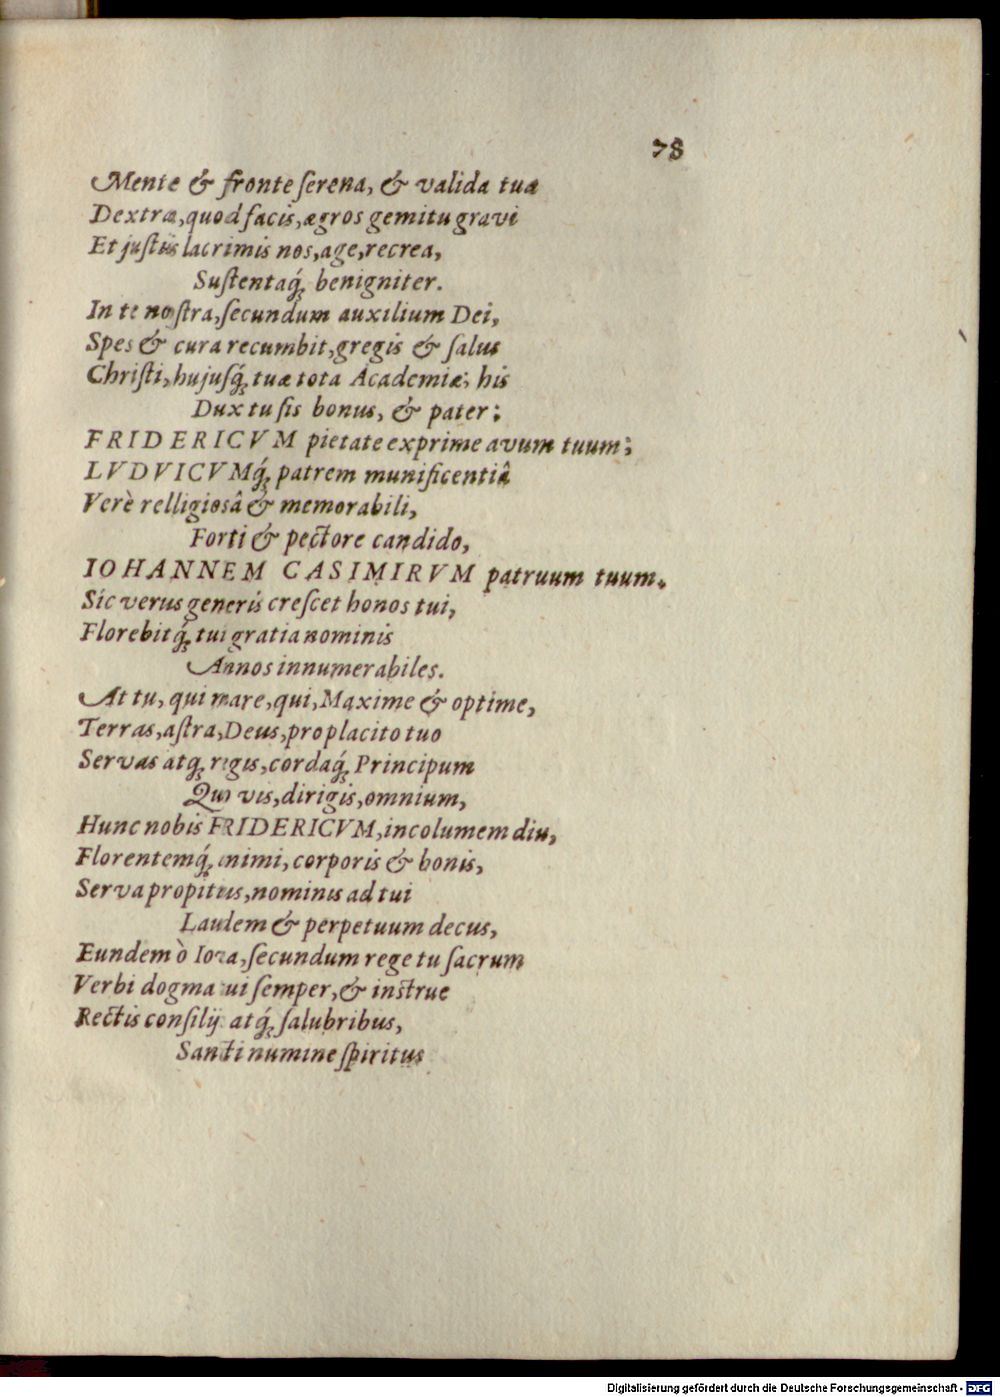 78
Mente & fronte ſerena, & valida tuæ
Dextræ, quod facis, ægros gemitu gravi
Et juſtis lacrimis nos, age, recrea,
Suſtentaq́; benigniter.
In te noſtra, ſecundum auxilium Dei,
Spes & cura recumbit, gregis & ſalus
Chriſti, hujuſq́; tuæ tota Academiæ; his
Dux tu ſis bonus, & pater;
FRIDERICVM pietate exprime avum tuum;
LVDVICVMq́; patrem munificentiâ
Verè relligiosâ & memorabili,
Forti & pectore candido,
IOHANNEM CASIMIRVM patruum tuum.
Sic verus generis creſcet honos tui,
Florebitq́; tui gratia nominis
Annos innumerabiles.
At tu, qui mare, qui, Maxime & optime,
Terras, aſtra, Deus, pro placito tuo
Servas atq; regis, cordaq́; Principum
Quo vis, dirigis, omnium,
Hunc nobis FRIDERICVM, incolumem diu,
Florentemq́; animi, corporis & bonis,
Serva propitius, nominis ad tui
Laudem & perpetuum decus,
Eundem ò Iova, ſecundum rege tu ſacrum
Verbi dogma tui ſemper, & inſtrue
Rectis conſilijs atq́; ſalubribus,
Sancti numine ſpiritus
Digitalisierung gefördert durch die Deutsche Forschungsgemeinschaft - DFG